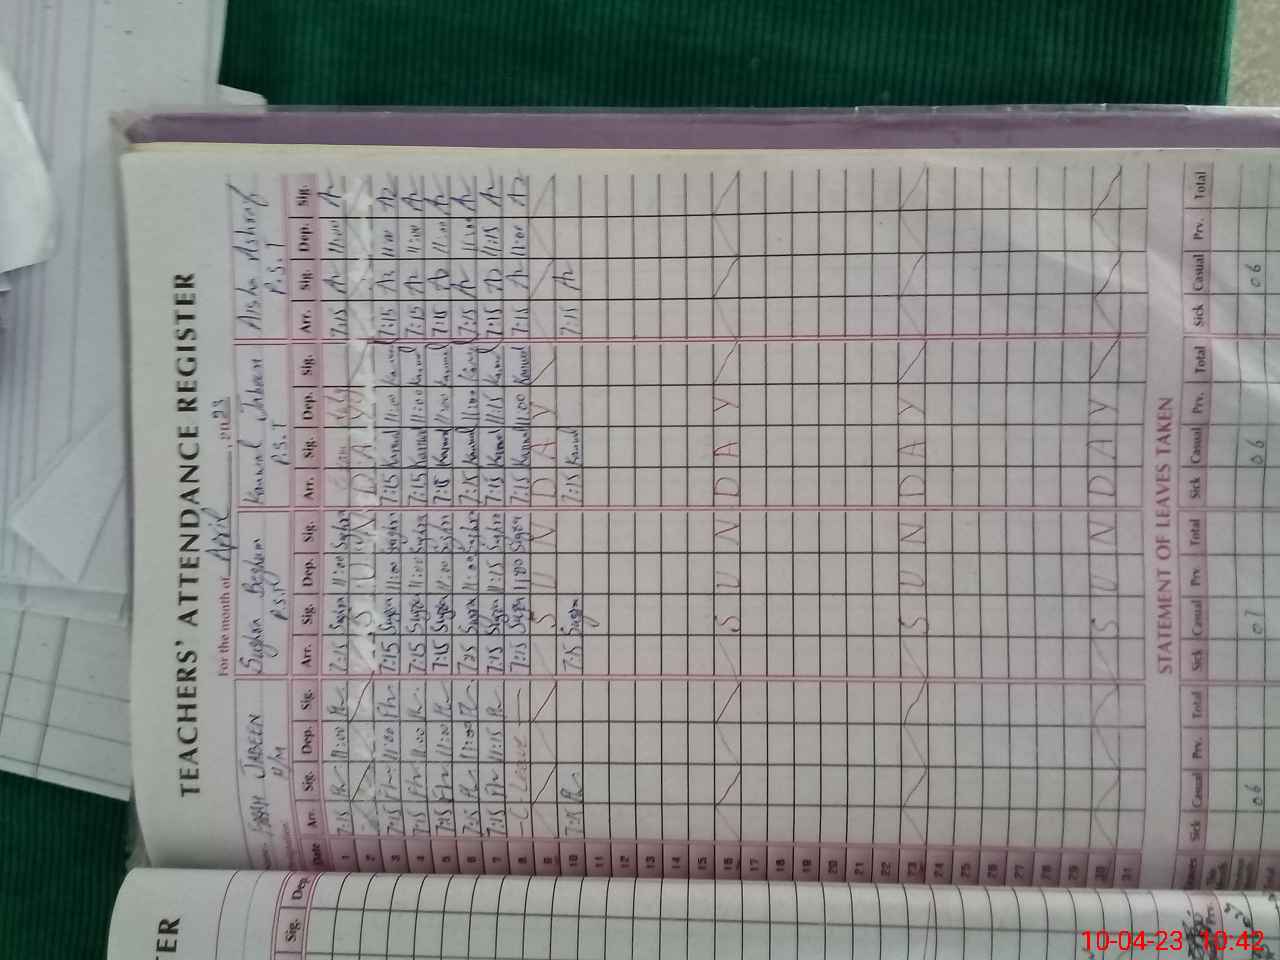 TEACHERS' ATTENDANCE REGISTER
For the month of April, 2023
FARAH JABEEN Sughra Begham Kanwal Jabeen Aisha Ashraf
H/M P.S.T P.S.T P.S.T
Date Arr. Sig. Dep. Sig. Arr. Sig. Dep. Sig. Arr. Sig. Dep. Sig. Arr. Sig. Dep. Sig.
1 7:15 11:00 7:15 Sughra 11:00 Sughra 7:15 11:00
2 S U N D A Y
3 7:15 11:00 7:15 Sughra 11:00 Sughra 7:15 Kanwal 11:00 Kanwal 7:15 11:00
4 7:15 11:00 7:15 Sughra 11:00 Sughra 7:15 Kanwal 11:00 Kanwal 7:15 11:00
5 7:15 11:00 7:15 Sughra 11:00 Sughra 7:15 Kanwal 11:00 Kanwal 7:15 11:00
6 7:15 11:00 7:15 Sughra 11:00 Sughra 7:15 Kanwal 11:00 Kanwal 7:15 11:00
7 7:15 11:15 7:15 Sughra 11:15 Sughra 7:15 Kanwal 11:15 Kanwal 7:15 11:15
8 - C - Leave 7:15 Sughra 11:00 Sughra 7:15 Kanwal 11:00 Kanwal 7:15 11:00
9 S U N D A Y
10 7:15 7:15 Sughra 7:15 Kanwal 7:15
11
12
13
14
15
16 S U N D A Y
17
18
19
20
21
22
23 S U N D A Y
24
25
26
27
28
29
30 S U N D A Y
31
STATEMENT OF LEAVES TAKEN
Sick Casual Prv. Total Sick Casual Prv. Total Sick Casual Prv. Total Sick Casual Prv. Total
06 07 06 06
TER
Sig. Dep.
10-04-23 10:42